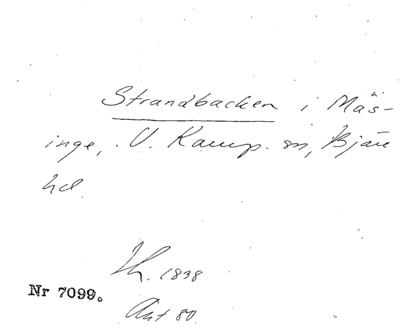 Strandbacken i Mäs-
inge, V. Karup sn, Bjäre
hd
Th. 1838
Nr 7099.
Avt 80